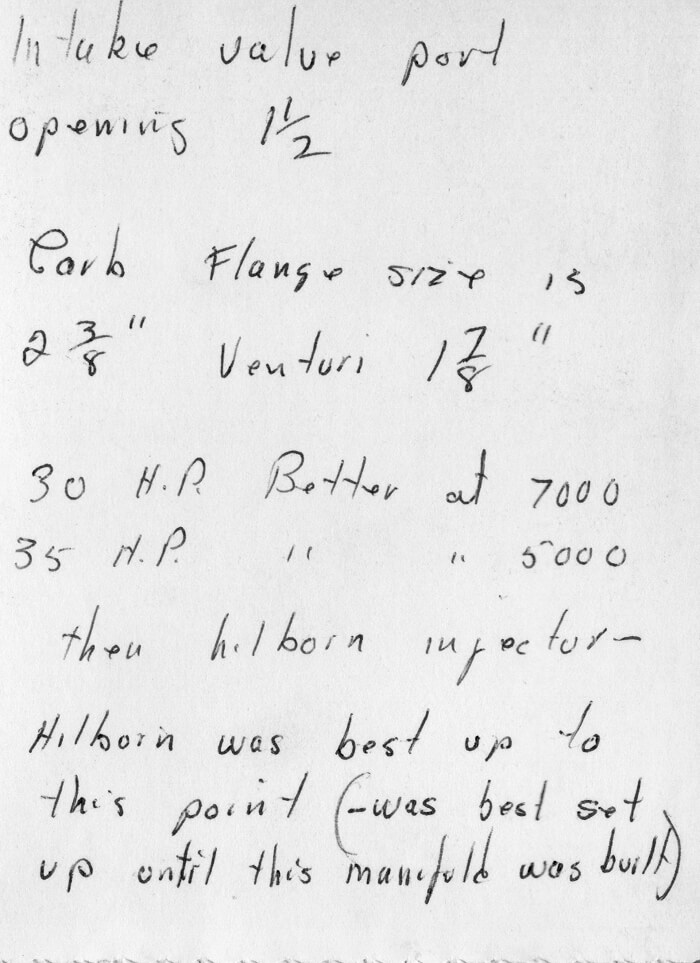 Intake valve port
opening 1 1/2
Carb Flange size is
2 3/8" Venturi 1 7/8"
30 H.P. Better at 7000
35 H.P. " " 5000
then hilborn injector-
Hilborn was best up to
this point (-was best set
up until this manifold was built)